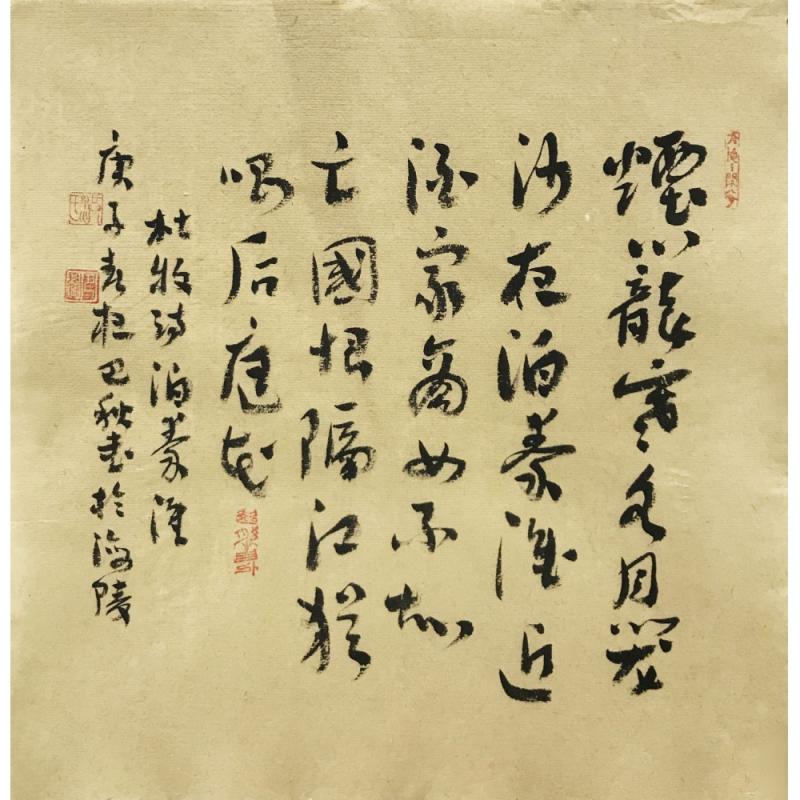 煙籠寒水月籠
沙夜泊秦淮近
酒家商女不知
亡國恨隔江猶
唱后庭花
杜牧詩泊秦淮
庚子春夜巴秋書於海陵